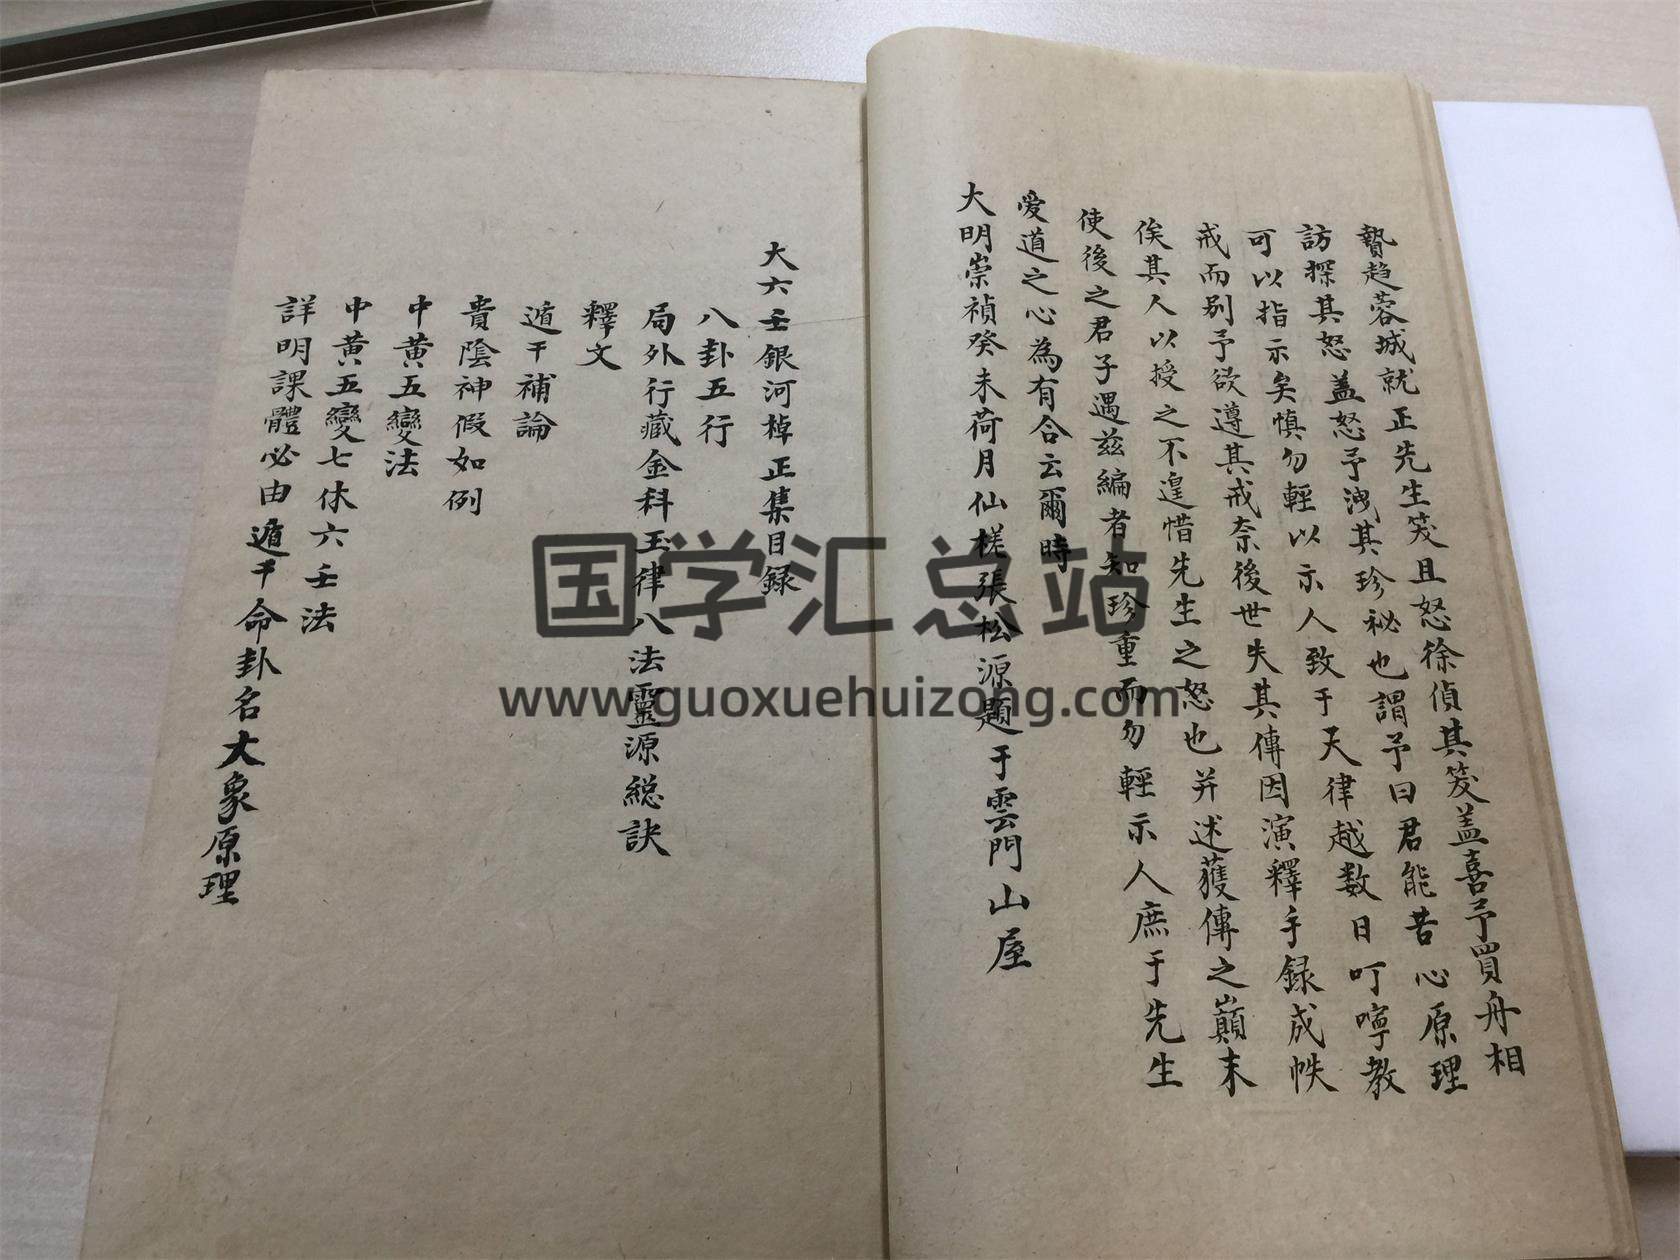 贄趋蓉城就正先生笈且怒徐偵其笈盖喜予買舟相
訪探其怒盖怒予洩其珍秘也謂予曰君能苦心原理
可以指示矣慎勿輕以示人致于天律越数日叮嚀教
戒而别予欲遵其戒奈後世失其傳因演釋手録成帙
俟其人以授之不遑惜先生之怒也并述獲傳之巔末
使後之君子遇兹編者知珍重而勿輕示人庶于先生
爱道之心為有合云爾時
大明崇禎癸未荷月仙槎張松源題于雲門山屋
大六壬銀河棹正集目録
八卦五行
局外行藏金科玉律八法靈源総訣
釋文
遁干補論
貴陰神假如例
中黄五變法
中黄五變七休六壬法
詳明課體必由遁干命卦名大象原理
国学汇总站
www.guoxuehuizong.com